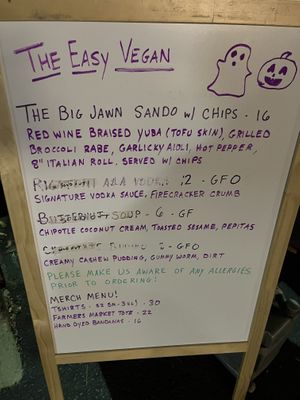 THE EASY VEGAN
THE BIG JAWN SANDO W/ CHIPS - 16
RED WINE BRAISED YUBA (TOFU SKIN), GRILLED
BROCCOLI RABE, GARLICKY AIOLI, HOT PEPPER,
8" ITALIAN ROLL. SERVED W/ CHIPS
ALLA VODKA 12 - GFO
SIGNATURE VODKA SAUCE, FIRECRACKER CRUMB
BUTTERNUT SOUP - 6 - GF
CHIPOTLE COCONUT CREAM, TOASTED SESAME, PEPITAS
- GFO
CREAMY CASHEW PUDDING, GUMMY WORM, DIRT
PLEASE MAKE US AWARE OF ANY ALLERGIES
PRIOR TO ORDERING!
MERCH MENU!
TSHIRTS - - 30
FARMERS MARKET TOTE - 22
HAND DYED BANDANAS - 16